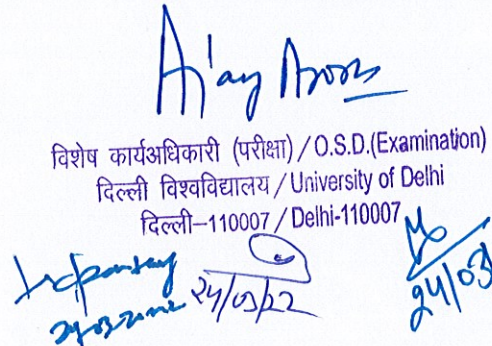 Ajay Arora
विशेष कार्यअधिकारी (परीक्षा) / O.S.D.(Examination)
दिल्ली विश्वविद्यालय / University of Delhi
दिल्ली–110007 / Delhi-110007
24/03/22
24/03